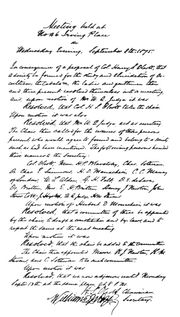 Meeting held at
No 46 Irving Place
on
Wednesday Evening September 8th 1875.
In consequence of a proposal of Col. Henry S. Olcott, that
a Society be formed for the study and elucidation of Oc-
cultism, the Cabala &c, the ladies and gentlemen then
and there present resolved themselves into a meeting
and, upon motion of Mr. W. Q. Judge it was
Resolved, that Col. H. S. Olcott take the chair.
Upon motion it was also
Resolved, that Mr. W. Q. Judge act as secretary.
The Chair then called for the names of the persons
present, who would agree to found and belong to a society
such as had been mentioned. The following persons handed
their names to the Secretary:
Col. Olcott, Mme. H. P. Blavatsky, Chas. Sotheran,
Dr. Chas. E. Simmons, H. D. Monachesi, C. C. Massey
of London, W. L. Alden, G. H. Felt, D. E. de Lara,
Dr. Britten, Mrs. E. H. Britten, Henry J. Newton, John
Storer Cobb, J. Hyslop, W. Q. Judge, H. M. Stevens.
Upon motion of Herbert D. Monachesi it was
Resolved, that a committee of three be appointed
by the chair to draft a constitution and by laws and to
report the same at the next meeting.
Upon motion it was
Resolved, that the chair be added to the Committee.
The Chair then appointed Messrs H. J. Newton, H. M.
Stevens and C. Sotheran to be such committee.
Upon motion it was
Resolved, that we now adjourn until Monday
Sept. 13th at the same place at 8 P.M.
H. S. Olcott Chairman
William Q. Judge Secretary.